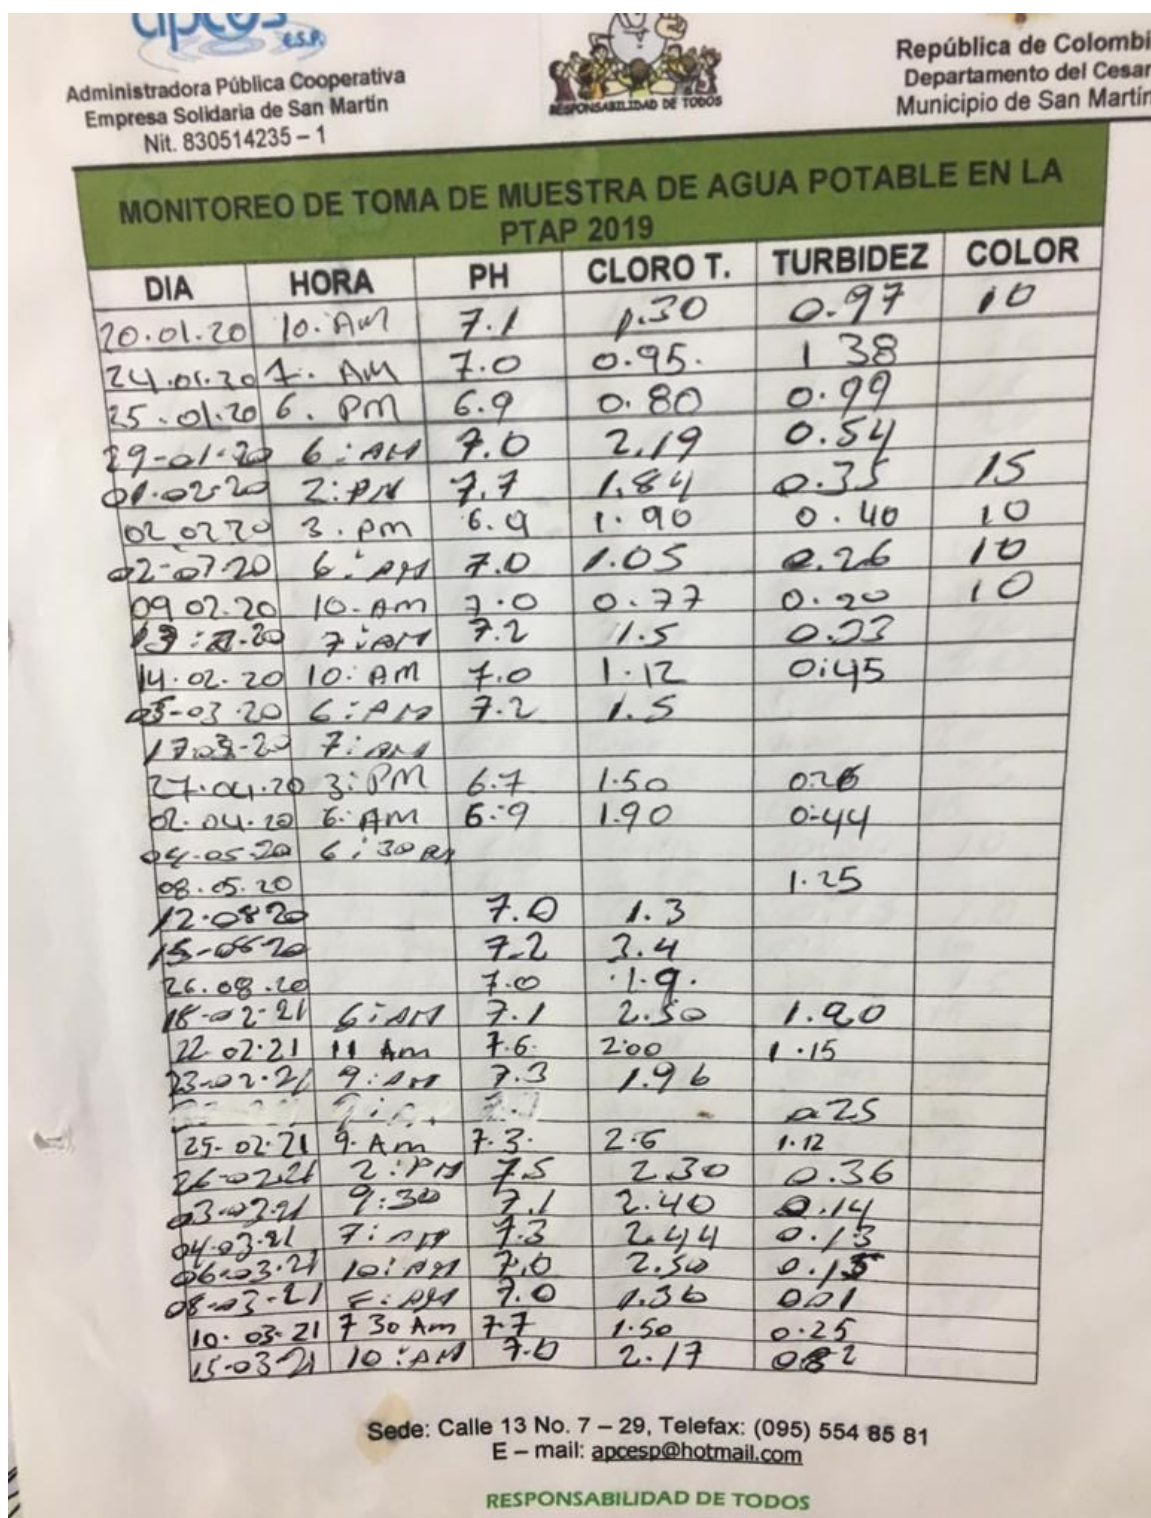 apcos
E.S.P.
Administradora Pública Cooperativa
Empresa Solidaria de San Martín
Nit. 830514235 – 1
RESPONSABILIDAD DE TODOS
República de Colombi
Departamento del Cesar
Municipio de San Martín
MONITOREO DE TOMA DE MUESTRA DE AGUA POTABLE EN LA
PTAP 2019
DIA HORA PH CLORO T. TURBIDEZ COLOR
20.01.20 10. AM 7.1 1.30 0.97 10
24.01.20 7. AM 7.0 0.95. 1 38
25.01.20 6. PM 6.9 0.80 0.99
29-01-20 6:AM 7.0 2.19 0.54
01.02-20 2:PM 7.7 1.84 0.35 15
02 02 20 3. pm 6.9 1.90 0.40 10
02-07-20 6:AM 7.0 1.05 0.26 10
09 02.20 10. AM 7.0 0.77 0.20 10
7:AM 7.2 1.5 0.33
14.02.20 10: AM 7.0 1.12 0:45
05-03.20 6:AM 7.2 1.5
17.03-20 7:AM
27.04.20 3:PM 6.7 1.50 0.26
02.04.20 6:AM 6.9 1.90 0.44
04.05.20 6:30
08.05.20 1.25
12.08 20 7.0 1.3
15-08-20 7.2 3.4
26.08.20 7.0 1.9.
18-02-21 6:AM 7.1 2.50 1.20
22.02.21 11 Am 7.6. 2.00 1.15
23-02-21 9:AM 7.3 1.96
0.25
25-02.21 9. Am 7.3. 2.6 1.12
26-02.21 2:PM 7.5 2.30 0.36
03-03.21 9:30 7.1 2.40 0.14
04.03.21 7:AM 7.3 2.44 0.13
06.03.21 10:AM 7.0 2.50 0.15
08-03-21 7.0 1.36 001
10.03.21 7 30 Am 7.7 1.50 0.25
15-03-21 10:AM 7.0 2.17
Sede: Calle 13 No. 7 – 29, Telefax: (095) 554 85 81
E – mail: apcesp@hotmail.com
RESPONSABILIDAD DE TODOS